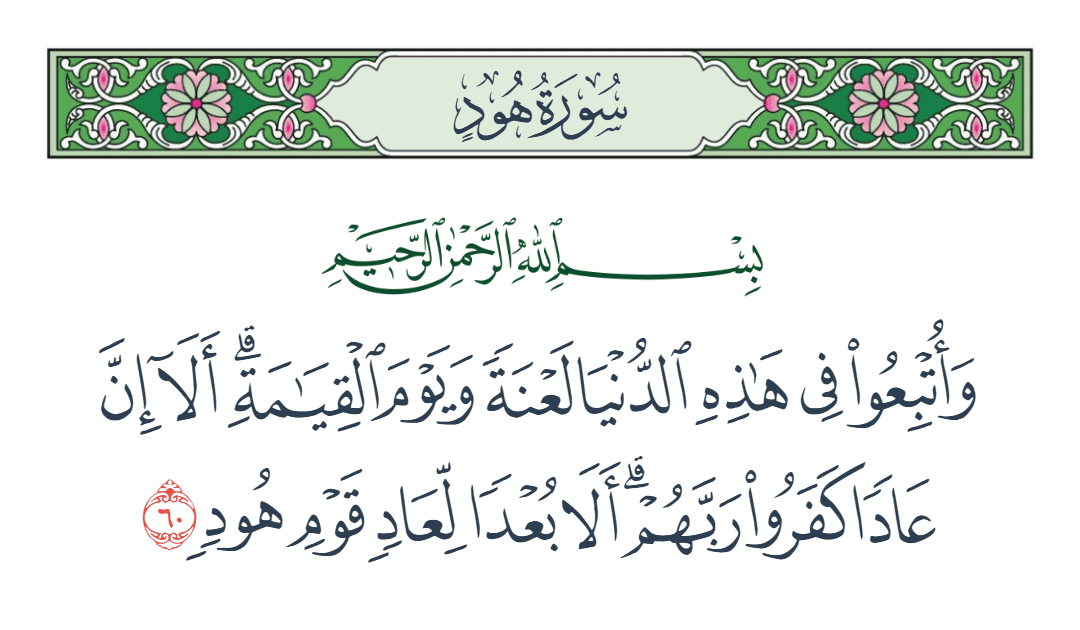 سُورَةُ هُودٍ
بِسْمِ ٱللَّهِ ٱلرَّحْمَٰنِ ٱلرَّحِيمِ
وَأُتْبِعُوا۟ فِى هَٰذِهِ ٱلدُّنْيَا لَعْنَةً وَيَوْمَ ٱلْقِيَٰمَةِ ۗ أَلَآ إِنَّ
عَادًا كَفَرُوا۟ رَبَّهُمْ ۗ أَلَا بُعْدًا لِّعَادٍ قَوْمِ هُودٍ ٦٠